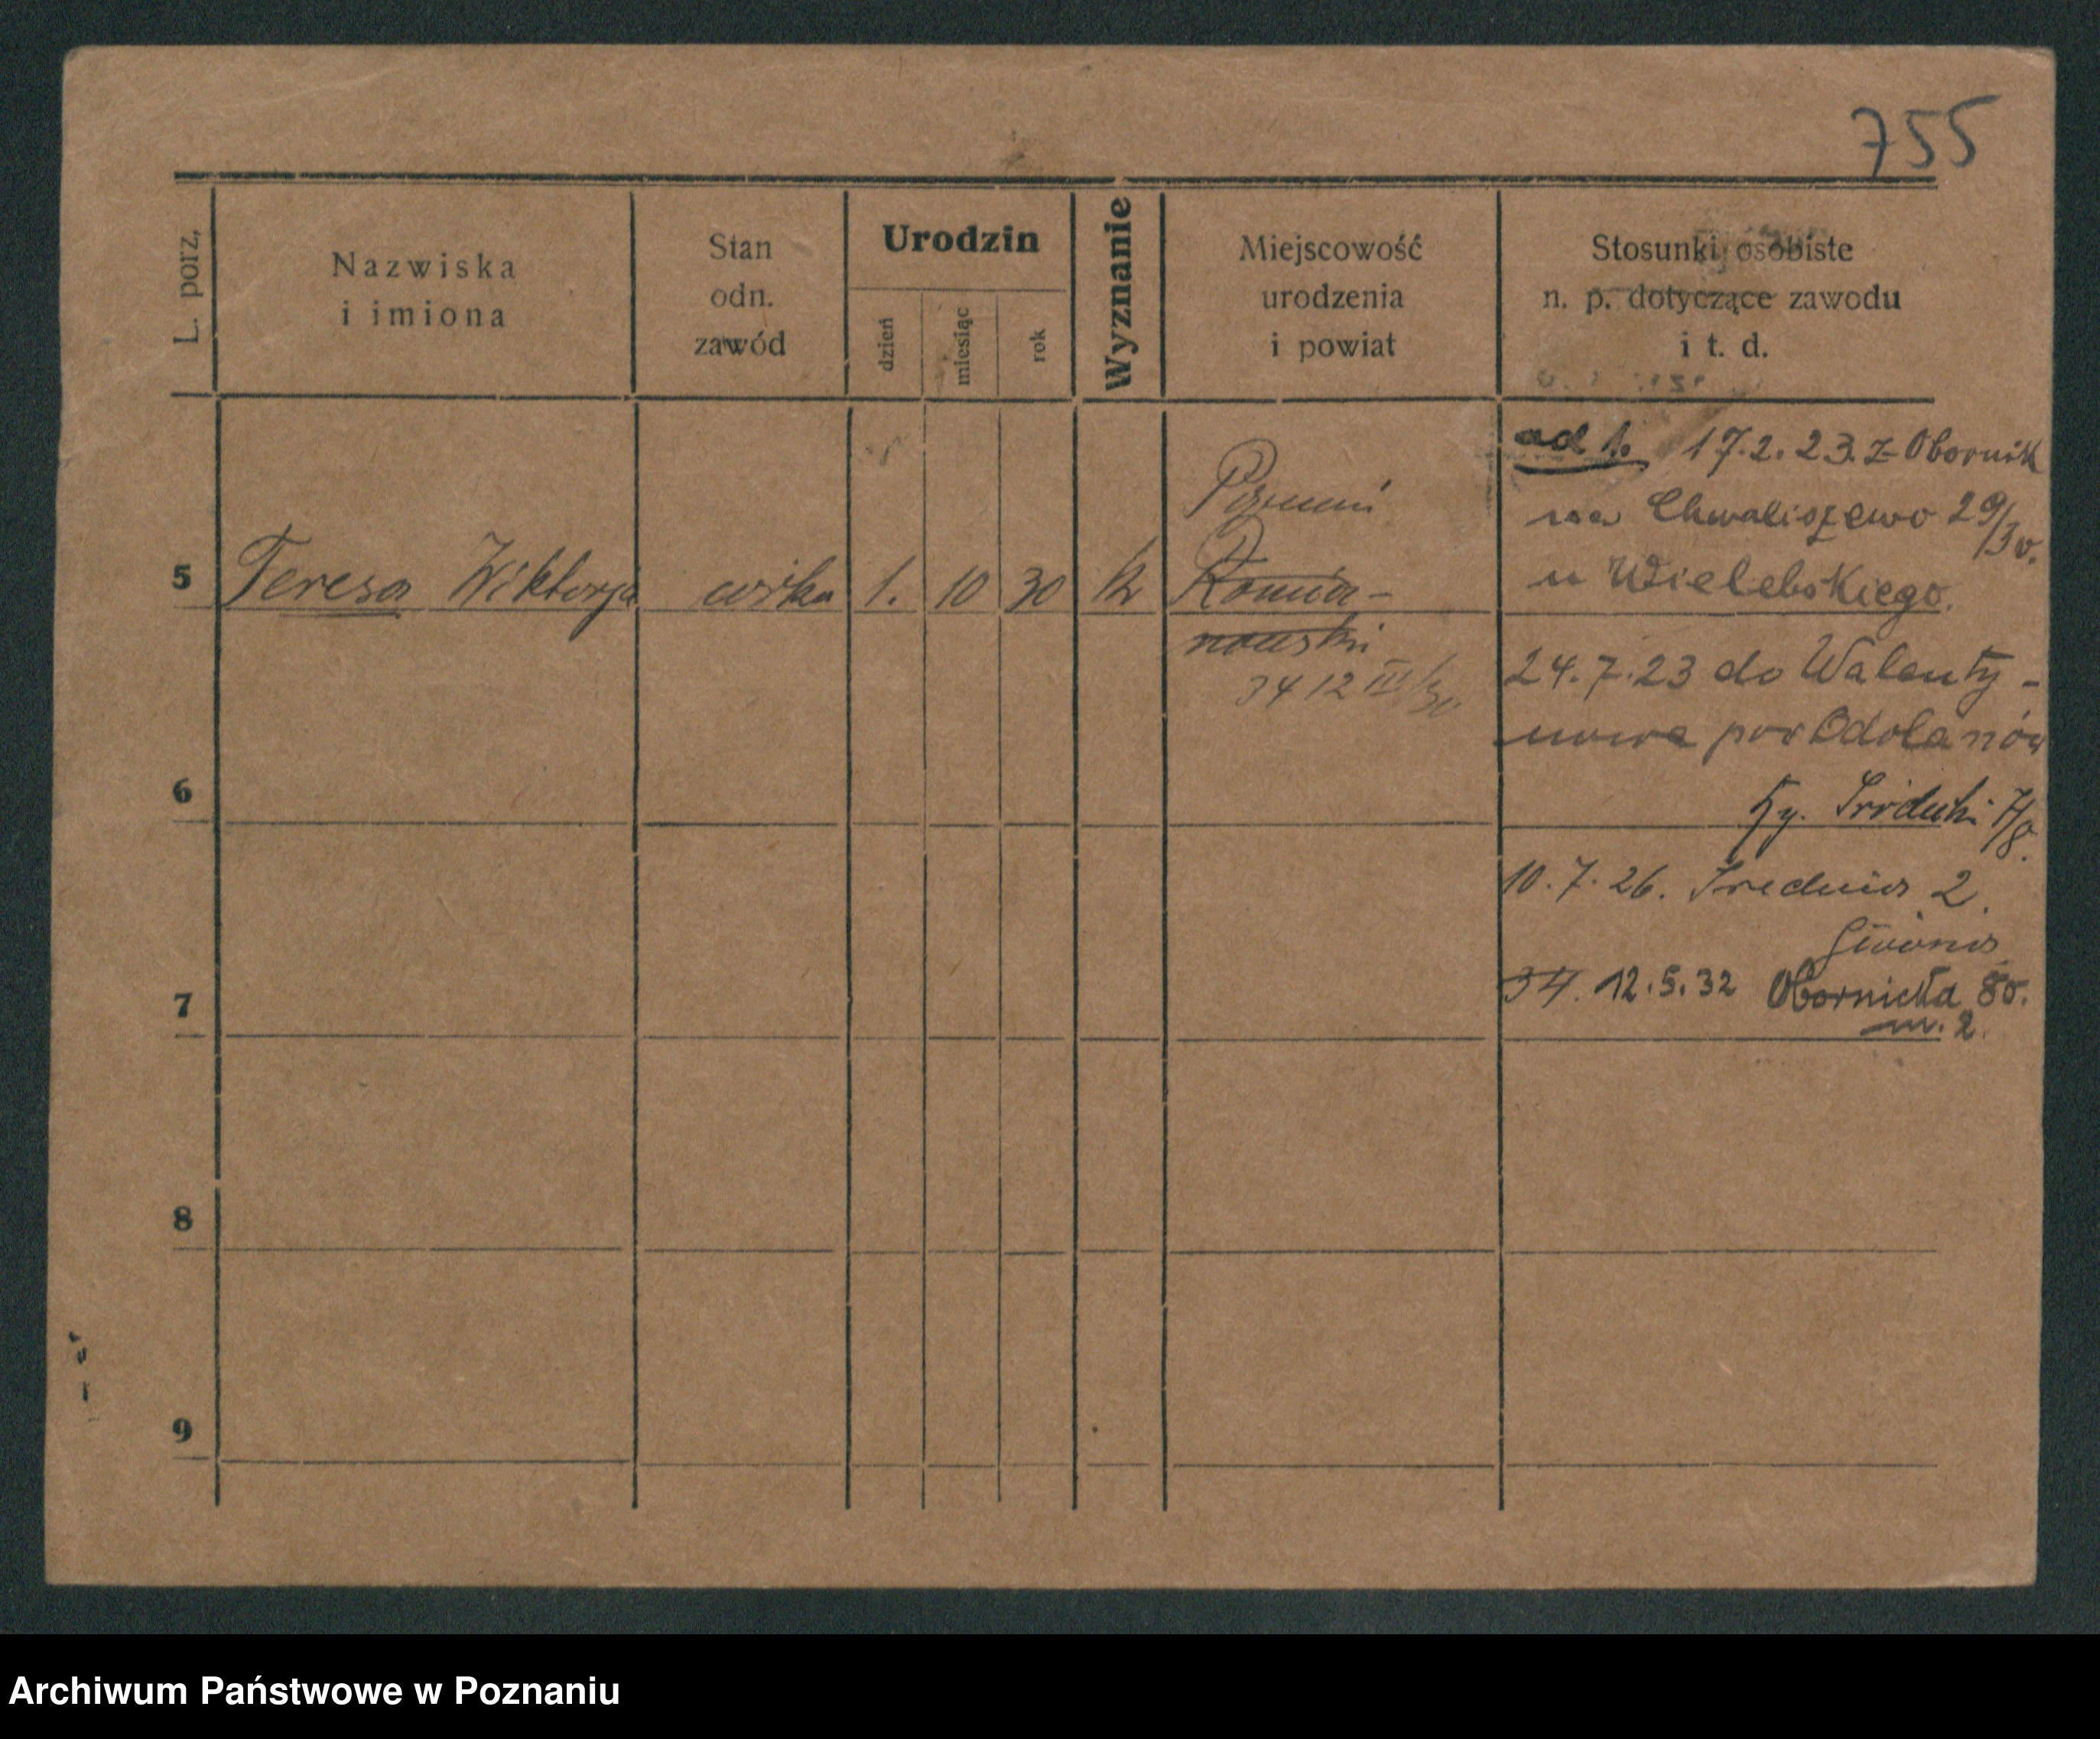 755
L. porz,
Nazwiska
i imiona
Stan
odn.
zawód
Urodzin
dzień
miesiąc
rok
Wyznanie
Miejscowość
urodzenia
i powiat
Stosunki osobiste
n. p. dotyczące zawodu
i t. d.
5
Teresa Wiktorja
córka
1.
10
30
k
Poznań
34 12
ad 1. 17.2.23. z Obornik
na Chwaliszewo 29/30.
u Wielebskiego.
24.7.23 do Walenty-
nowa pow Odolanów
10.7.26. Średnia 2.
34. 12.5.32 Obornicka 80.
m. 2.
6
7
8
9
Archiwum Państwowe w Poznaniu